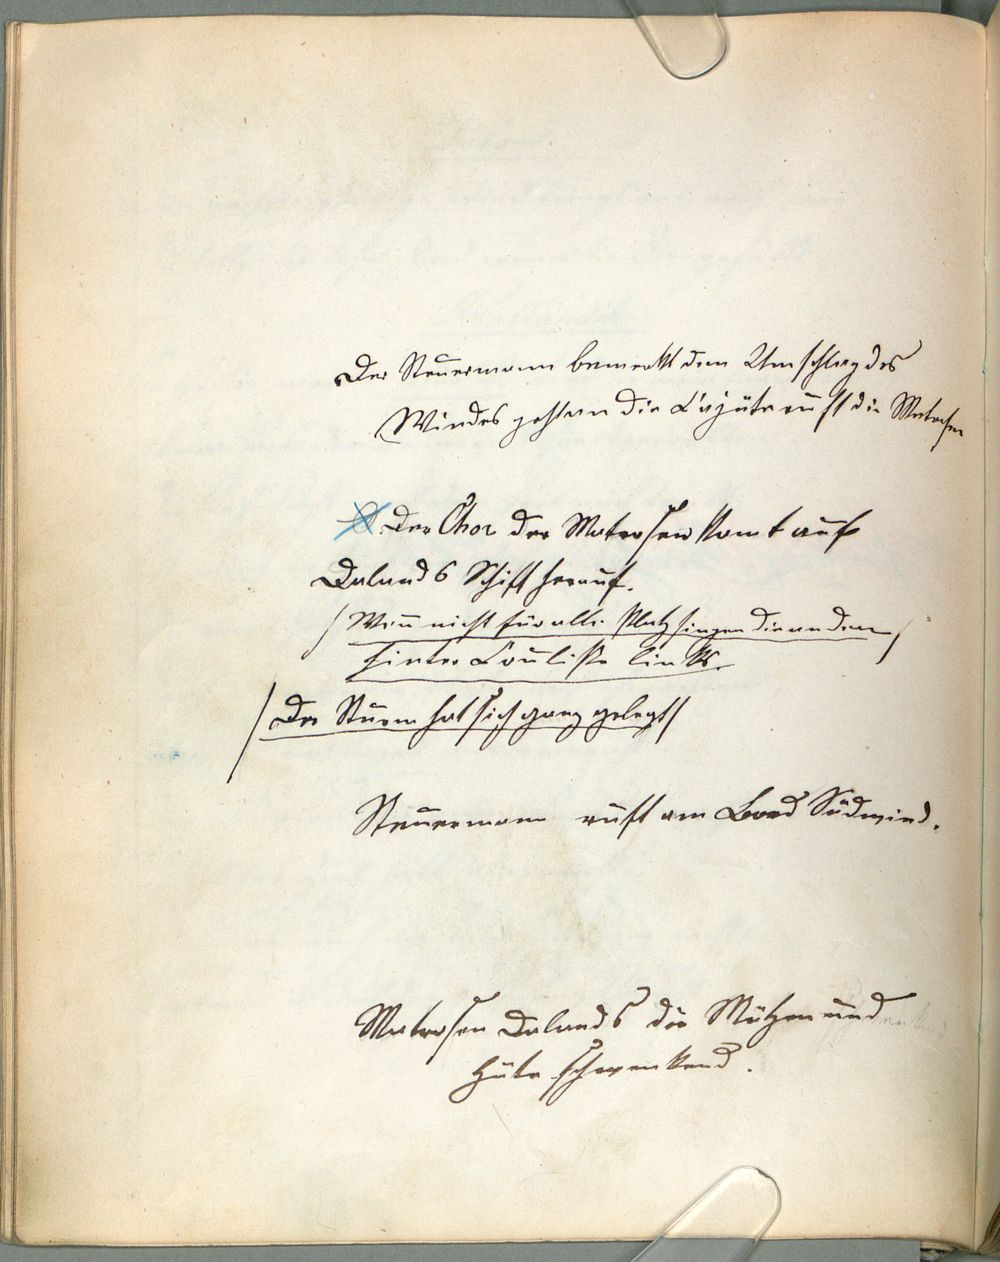 Der Steuermann bemerkt den Umschlag des
Windes geht an die Cajüte ruft die Matrosen
Der Chor der Matrosen komt auf
Dalands Schiff herauf.
/ Wenn nicht für alle Platz singen die andern /
hinter Coulisse links.
/ Der Sturm hat sich ganz gelegt /
Steuermann ruft am Bord Südwind.
Matrosen Dalands die Mützen und
Hüte schwenkend.